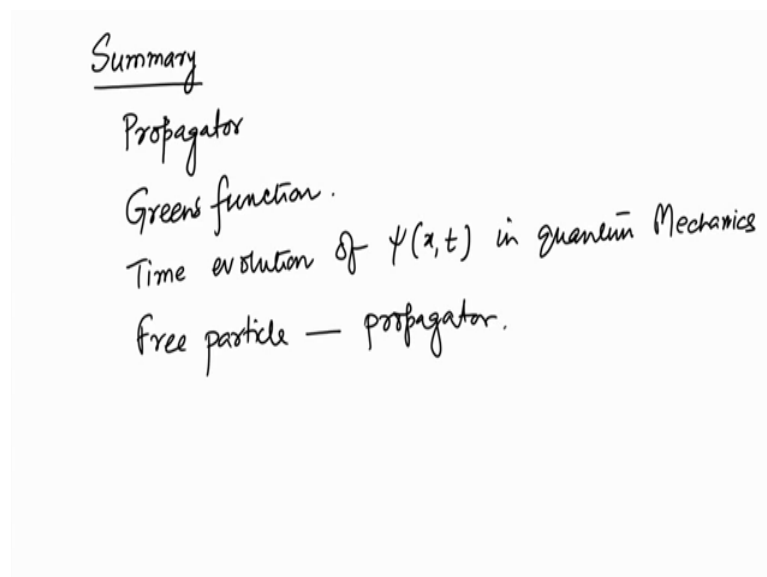 Summary
Propagator
Green's function.
Time evolution of ψ(x,t) in quantum Mechanics
Free particle — propagator.